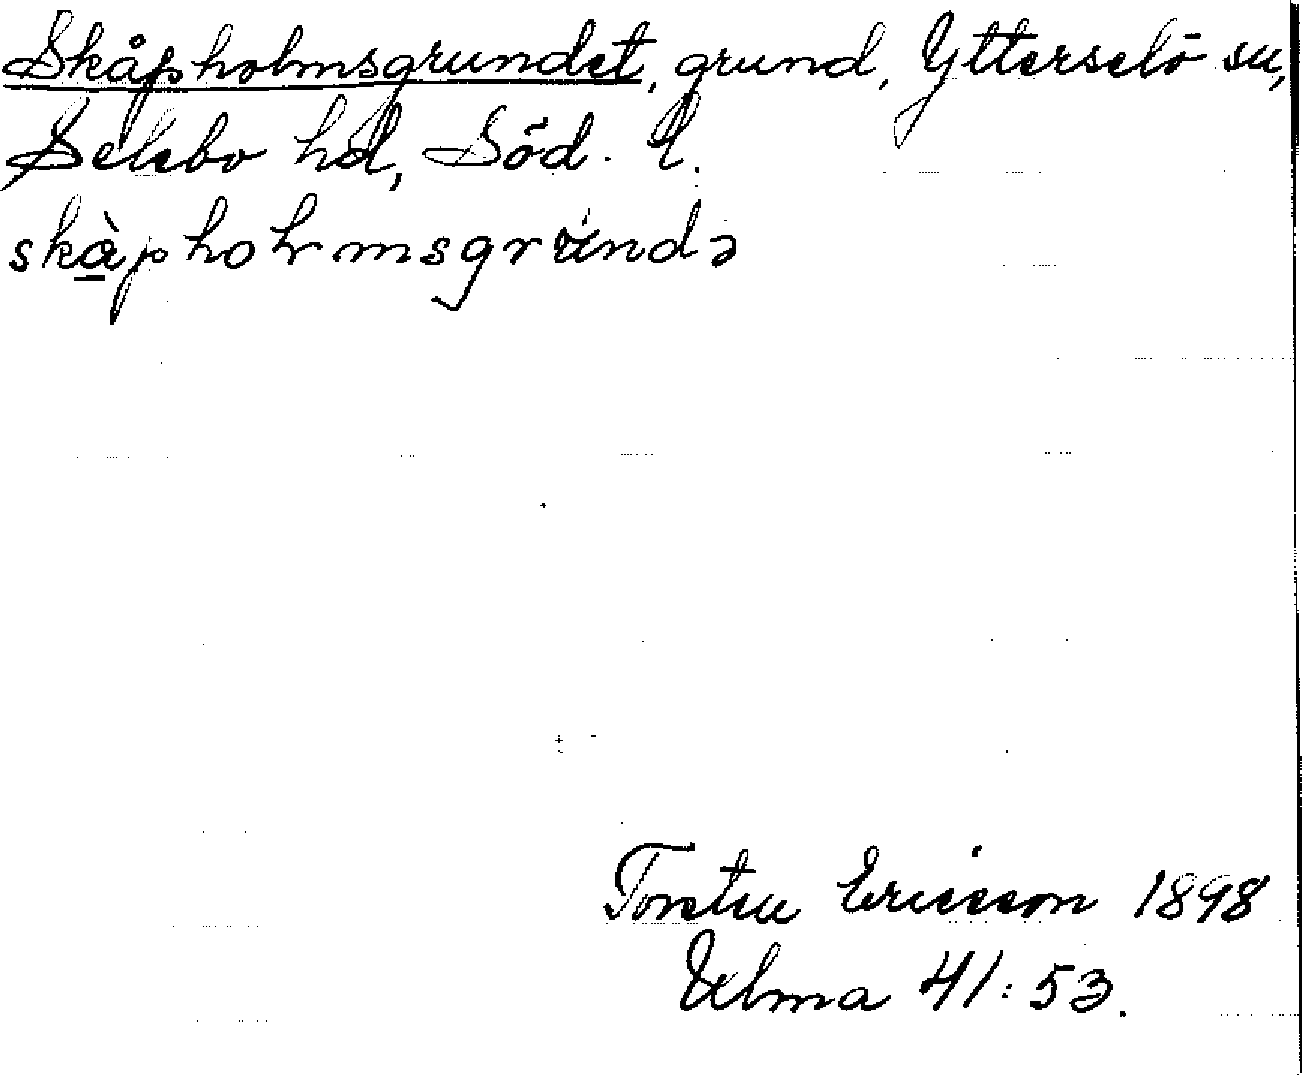 Skåpholmsgrundet, grund, Ytterselö sn,
Selebo hd, Söd. l.
skàpholmsgrundə
Torsten Ericson 1898
Ulma 41:53.